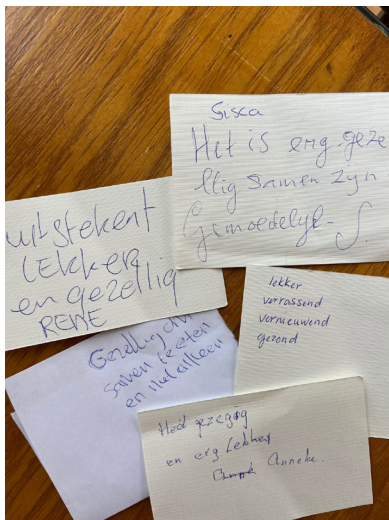 Sisca
Het is erg-geze
llig samen zyn
Gemoedelyk- S.
uitstekent
Lekker
en gezellig
RENE
lekker
verrassend
vernieuwend
gezond
Gezellig om
samen te eten
en niet alleen
Heel gezegig
en erg Lekker
Anneke.